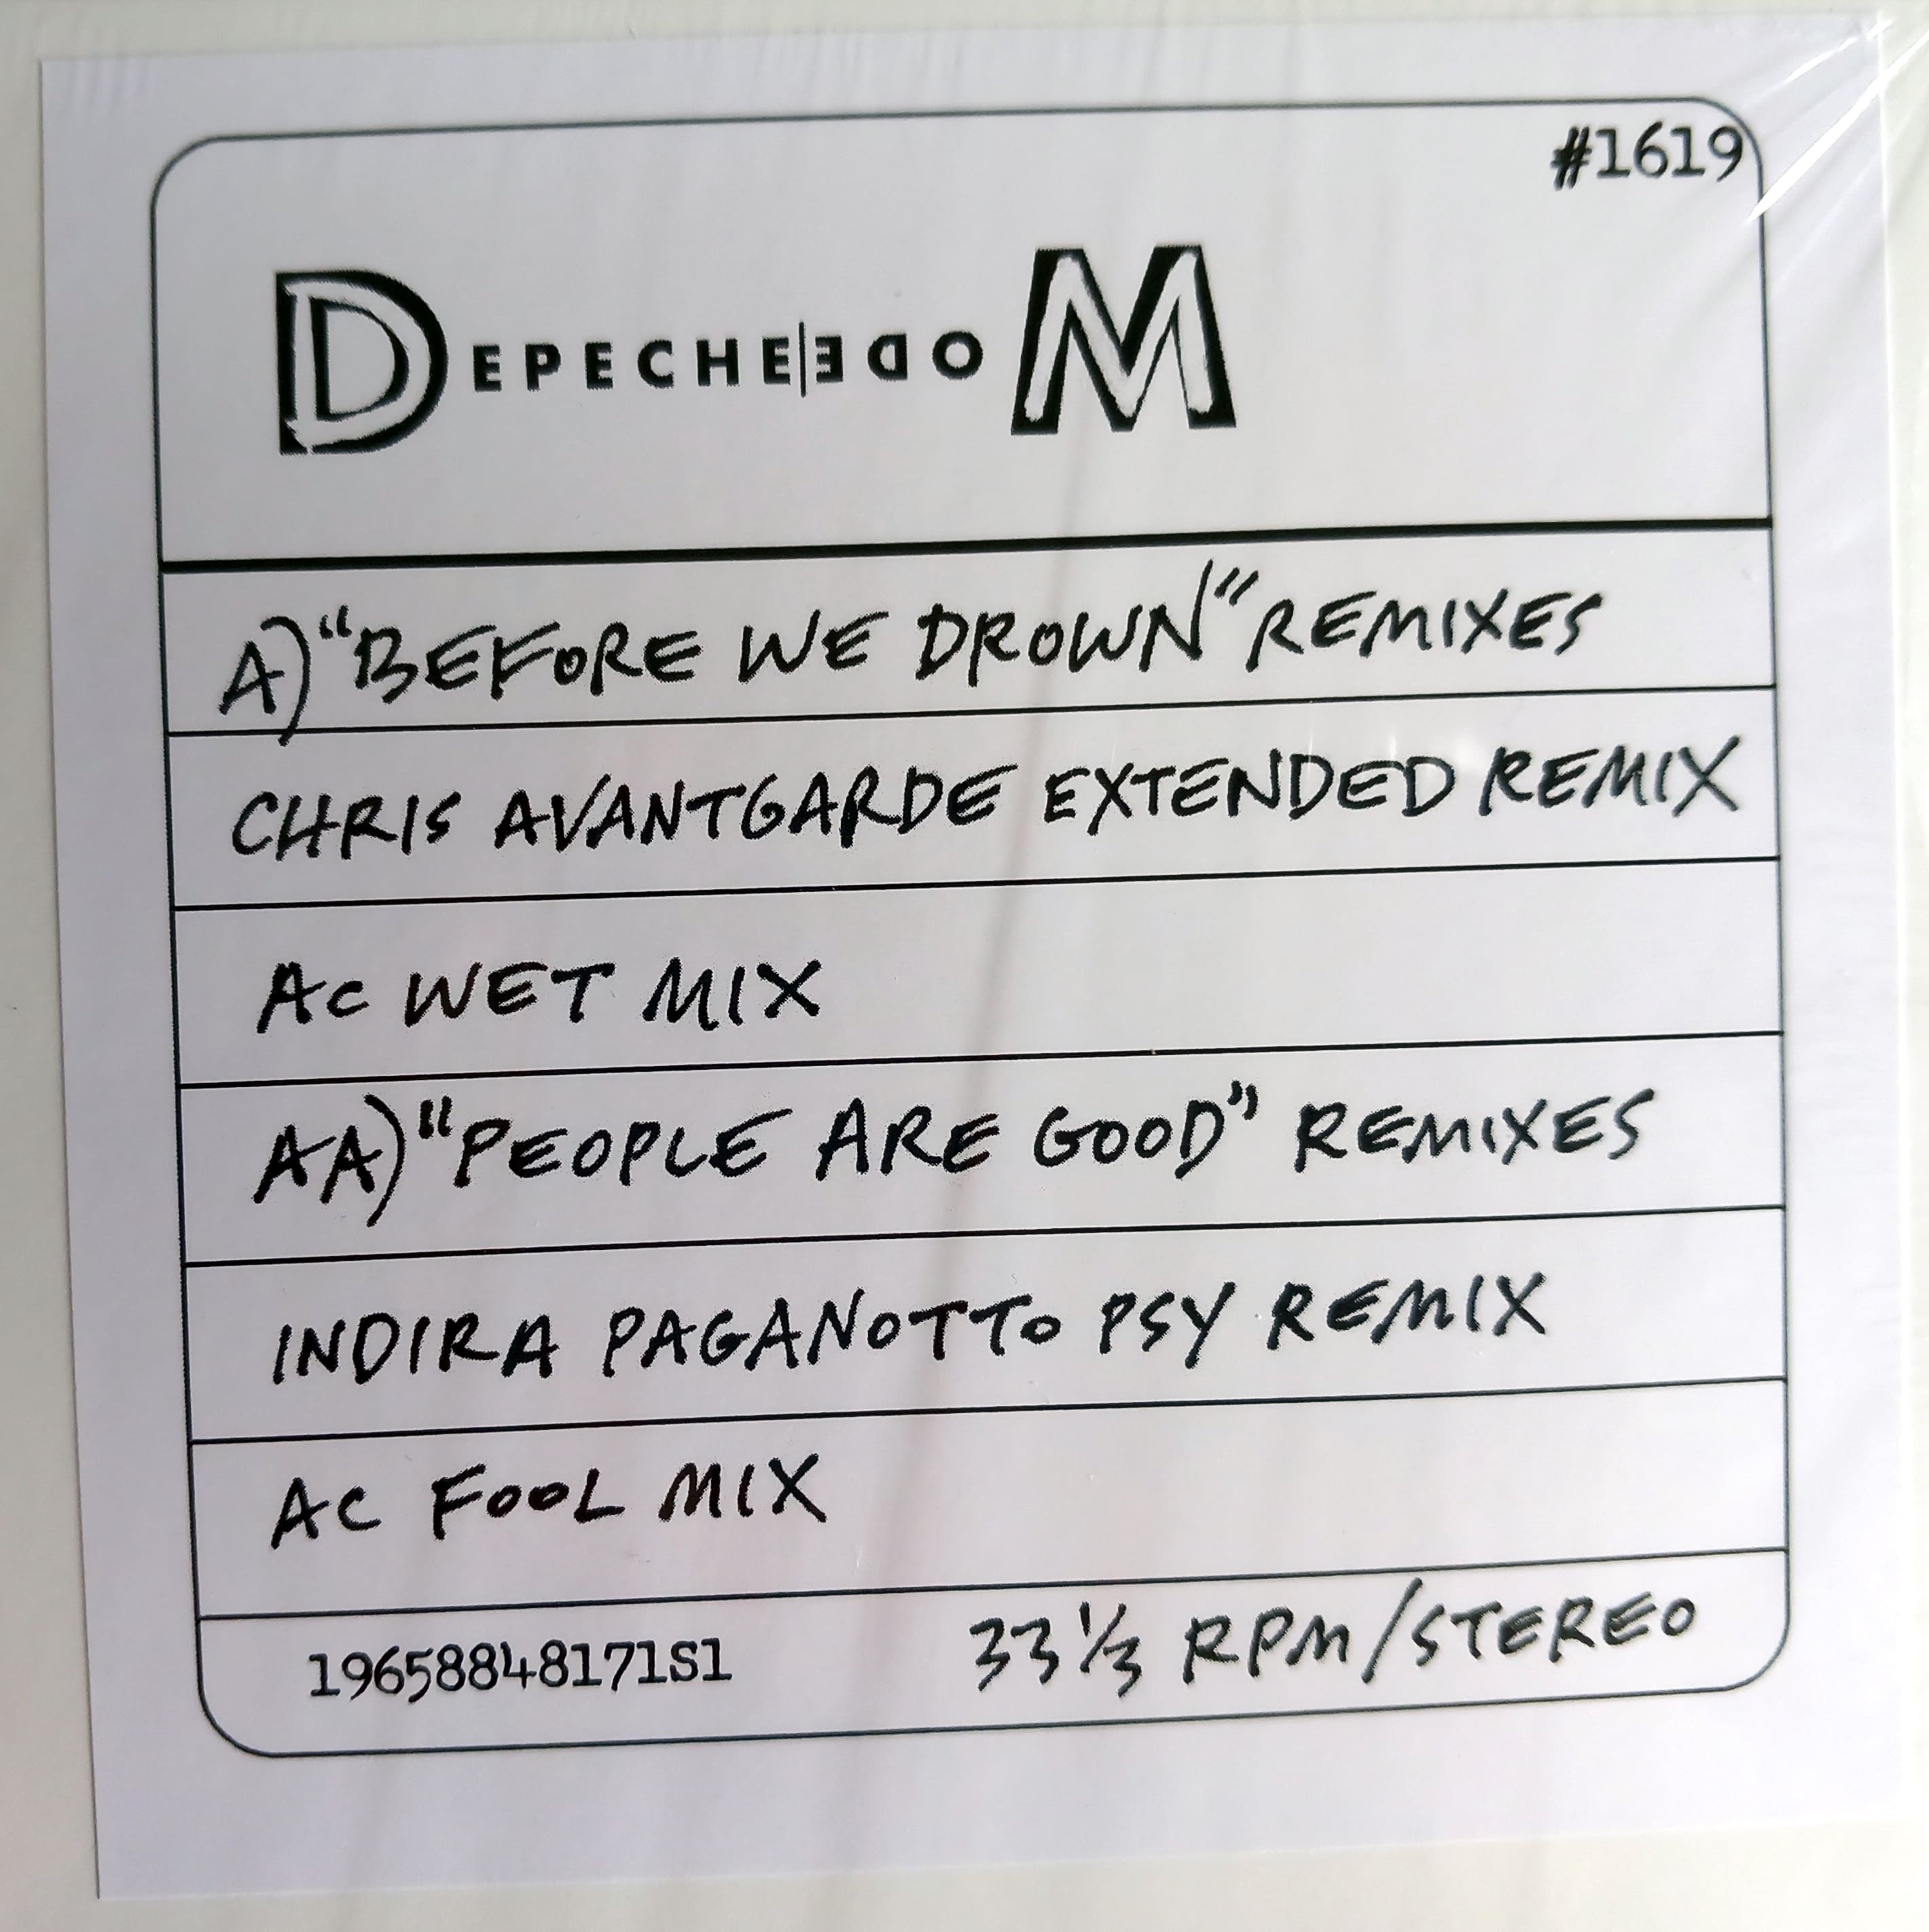 #1619
DEPECHE|EDOM
A) "BEFORE WE DROWN" REMIXES
CHRIS AVANTGARDE EXTENDED REMIX
AC WET MIX
AA) "PEOPLE ARE GOOD" REMIXES
INDIRA PAGANOTTO PSY REMIX
AC FOOL MIX
19658848171S1 33 1/3 RPM/STEREO